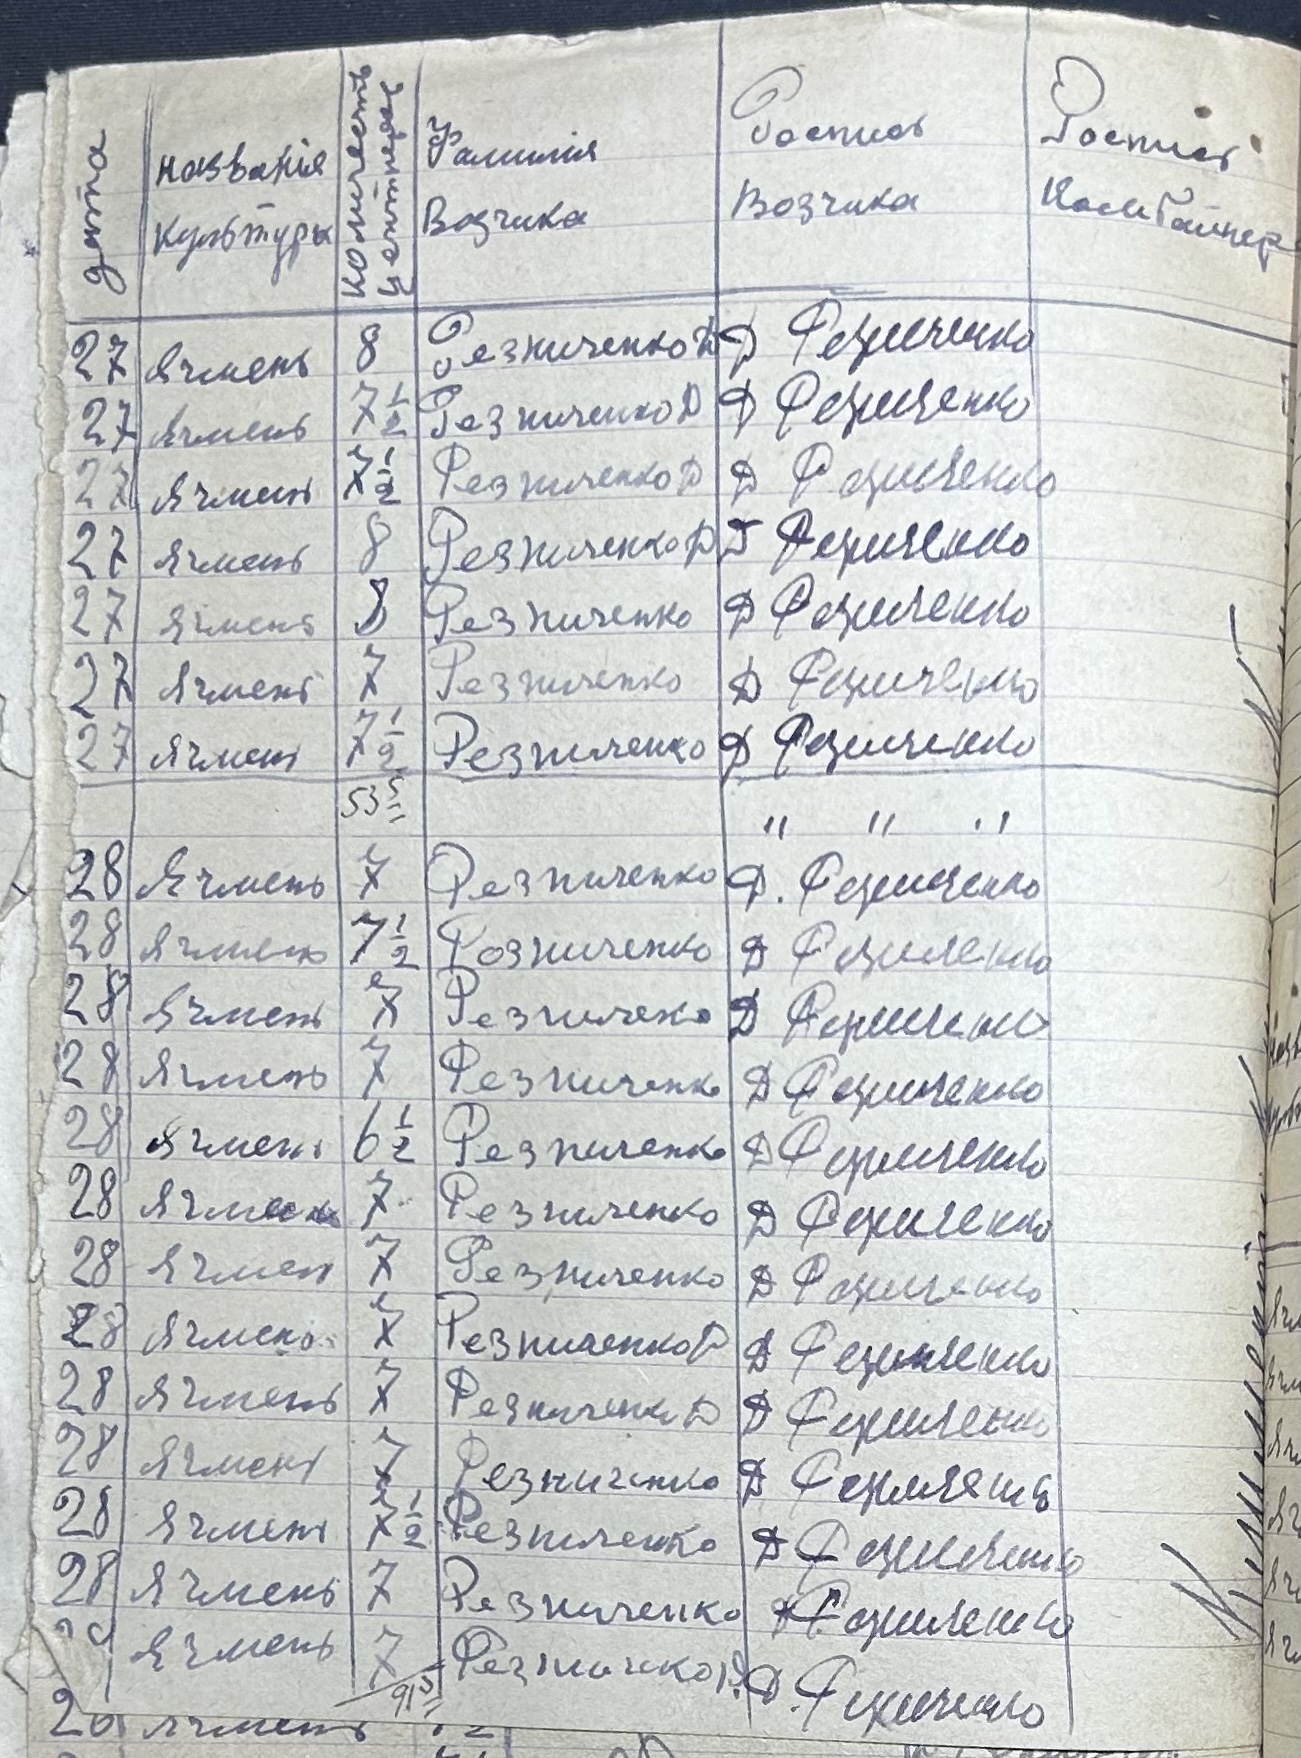 дата названія Количесть Фамилия Роспись Роспись
Культуры центнерав Возчика Возчика Комбайнер
27 Ячмень 8 Резниченко Д Д Резниченко
27 Ячмень 7 1/2 Резниченко Д Д Резниченко
27 Ячмень 7 1/2 Резниченко Д Д Резниченко
27 Ячмень 8 Резниченко Д Д Резниченко
27 Ячмень 8 Резниченко Д Резниченко
27 Ячмень 7 Резниченко Д Резниченко
27 Ячмень 7 1/2 Резниченко Д Резниченко
53 5 " " "
28 Ячмень 7 Резниченко Д. Резниченко
28 Ячмень 7 1/2 Розниченко Д Резниченко
28 Ячмень 7 Резничено Д Резниченко
28 Ячмень 7 Резниченко Д Резниченко
28 Ячмень 6 1/2 Резниченко Д Резниченко
28 Ячмень 7 Резниченко Д Резниченко
28 Ячмен 7 Резниченко Д Резниченко
28 Ячмень 7 Резниченко Д Резниченко
28 Ячмень 7 Резниченко Д Д Резниченко
28 Ячмень 7 Резниченко Д Резниченко
28 Ячмень 7 1/2 Резниченко Д Резниченко
28 Ячмень 7 Резниченко Д Резниченко
Ячмень 7 Резничнко Д. Д. Резниченко
91 5
Ячмень